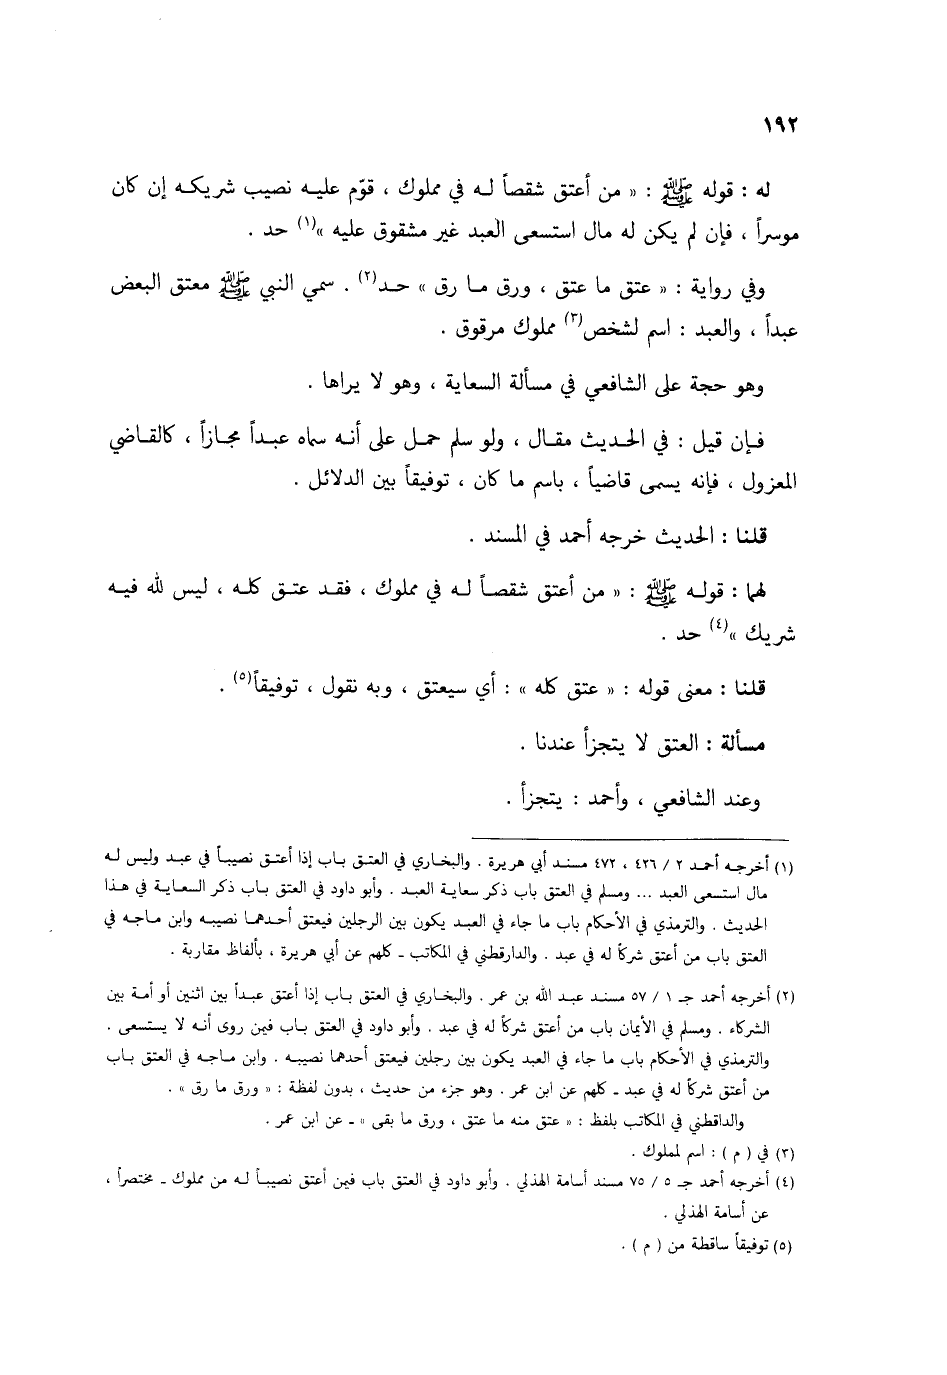 ١٩٢
له : قوله ﷺ : « من أعتق شقصاً له في مملوك ، قوّم عليه نصيب شريكه إن كان
موسراً ، فإن لم يكن له مال استسعى العبد غير مشقوق عليه »(١) حد .
وفي رواية : « عتق ما عتق ، ورق ما رق » حد(٢) . سمي النبي ﷺ معتق البعض
عبداً ، والعبد : اسم لشخص(٣) مملوك مرقوق .
وهو حجة على الشافعي في مسألة السعاية ، وهو لا يراها .
فإن قيل : في الحديث مقال ، ولو سلم حمل على أنه سماه عبداً مجازاً ، كالقاضي
المعزول ، فإنه يسمى قاضياً ، باسم ما كان ، توفيقاً بين الدلائل .
قلنا : الحديث خرجه أحمد في المسند .
لهما : قوله ﷺ : « من أعتق شقصاً له في مملوك ، فقد عتق كله ، ليس لله فيه
شريك »(٤) حد .
قلنا : معنى قوله : « عتق كله » : أي سيعتق ، وبه نقول ، توفيقاً(٥) .
مسألة : العتق لا يتجزأ عندنا .
وعند الشافعي ، وأحمد : يتجزأ .
(١) أخرجه أحمد ٢ / ٤٢٦ ، ٤٧٢ مسند أبي هريرة . والبخاري في العتق باب إذا أعتق نصيباً في عبد وليس له
مال استسعى العبد ... ومسلم في العتق باب ذكر سعاية العبد . وأبو داود في العتق باب ذكر السعاية في هذا
الحديث . والترمذي في الأحكام باب ما جاء في العبد يكون بين الرجلين فيعتق أحدهما نصيبه وابن ماجه في
العتق باب من أعتق شركاً له في عبد . والدارقطني في المكاتب ـ كلهم عن أبي هريرة ، بألفاظ مقاربة .
(٢) أخرجه أحمد جـ ١ / ٥٧ مسند عبد الله بن عمر . والبخاري في العتق باب إذا أعتق عبداً بين اثنين أو أمة بين
الشركاء . ومسلم في الأيمان باب من أعتق شركاً له في عبد . وأبو داود في العتق باب فيمن روى أنه لا يستسعى .
والترمذي في الأحكام باب ما جاء في العبد يكون بين رجلين فيعتق أحدهما نصيبه . وابن ماجه في العتق باب
من أعتق شركاً له في عبد ـ كلهم عن ابن عمر . وهو جزء من حديث ، بدون لفظة : « ورق ما رق » .
والداقطني في المكاتب بلفظ : « عتق منه ما عتق ، ورق ما بقى » ـ عن ابن عمر .
(٣) في ( م ) : اسم لمملوك .
(٤) أخرجه أحمد جـ ٥ / ٧٥ مسند أسامة الهذلي . وأبو داود في العتق باب فيمن أعتق نصيباً له من مملوك ـ مختصراً ،
عن أسامة الهذلي .
(٥) توفيقاً ساقطة من ( م ) .